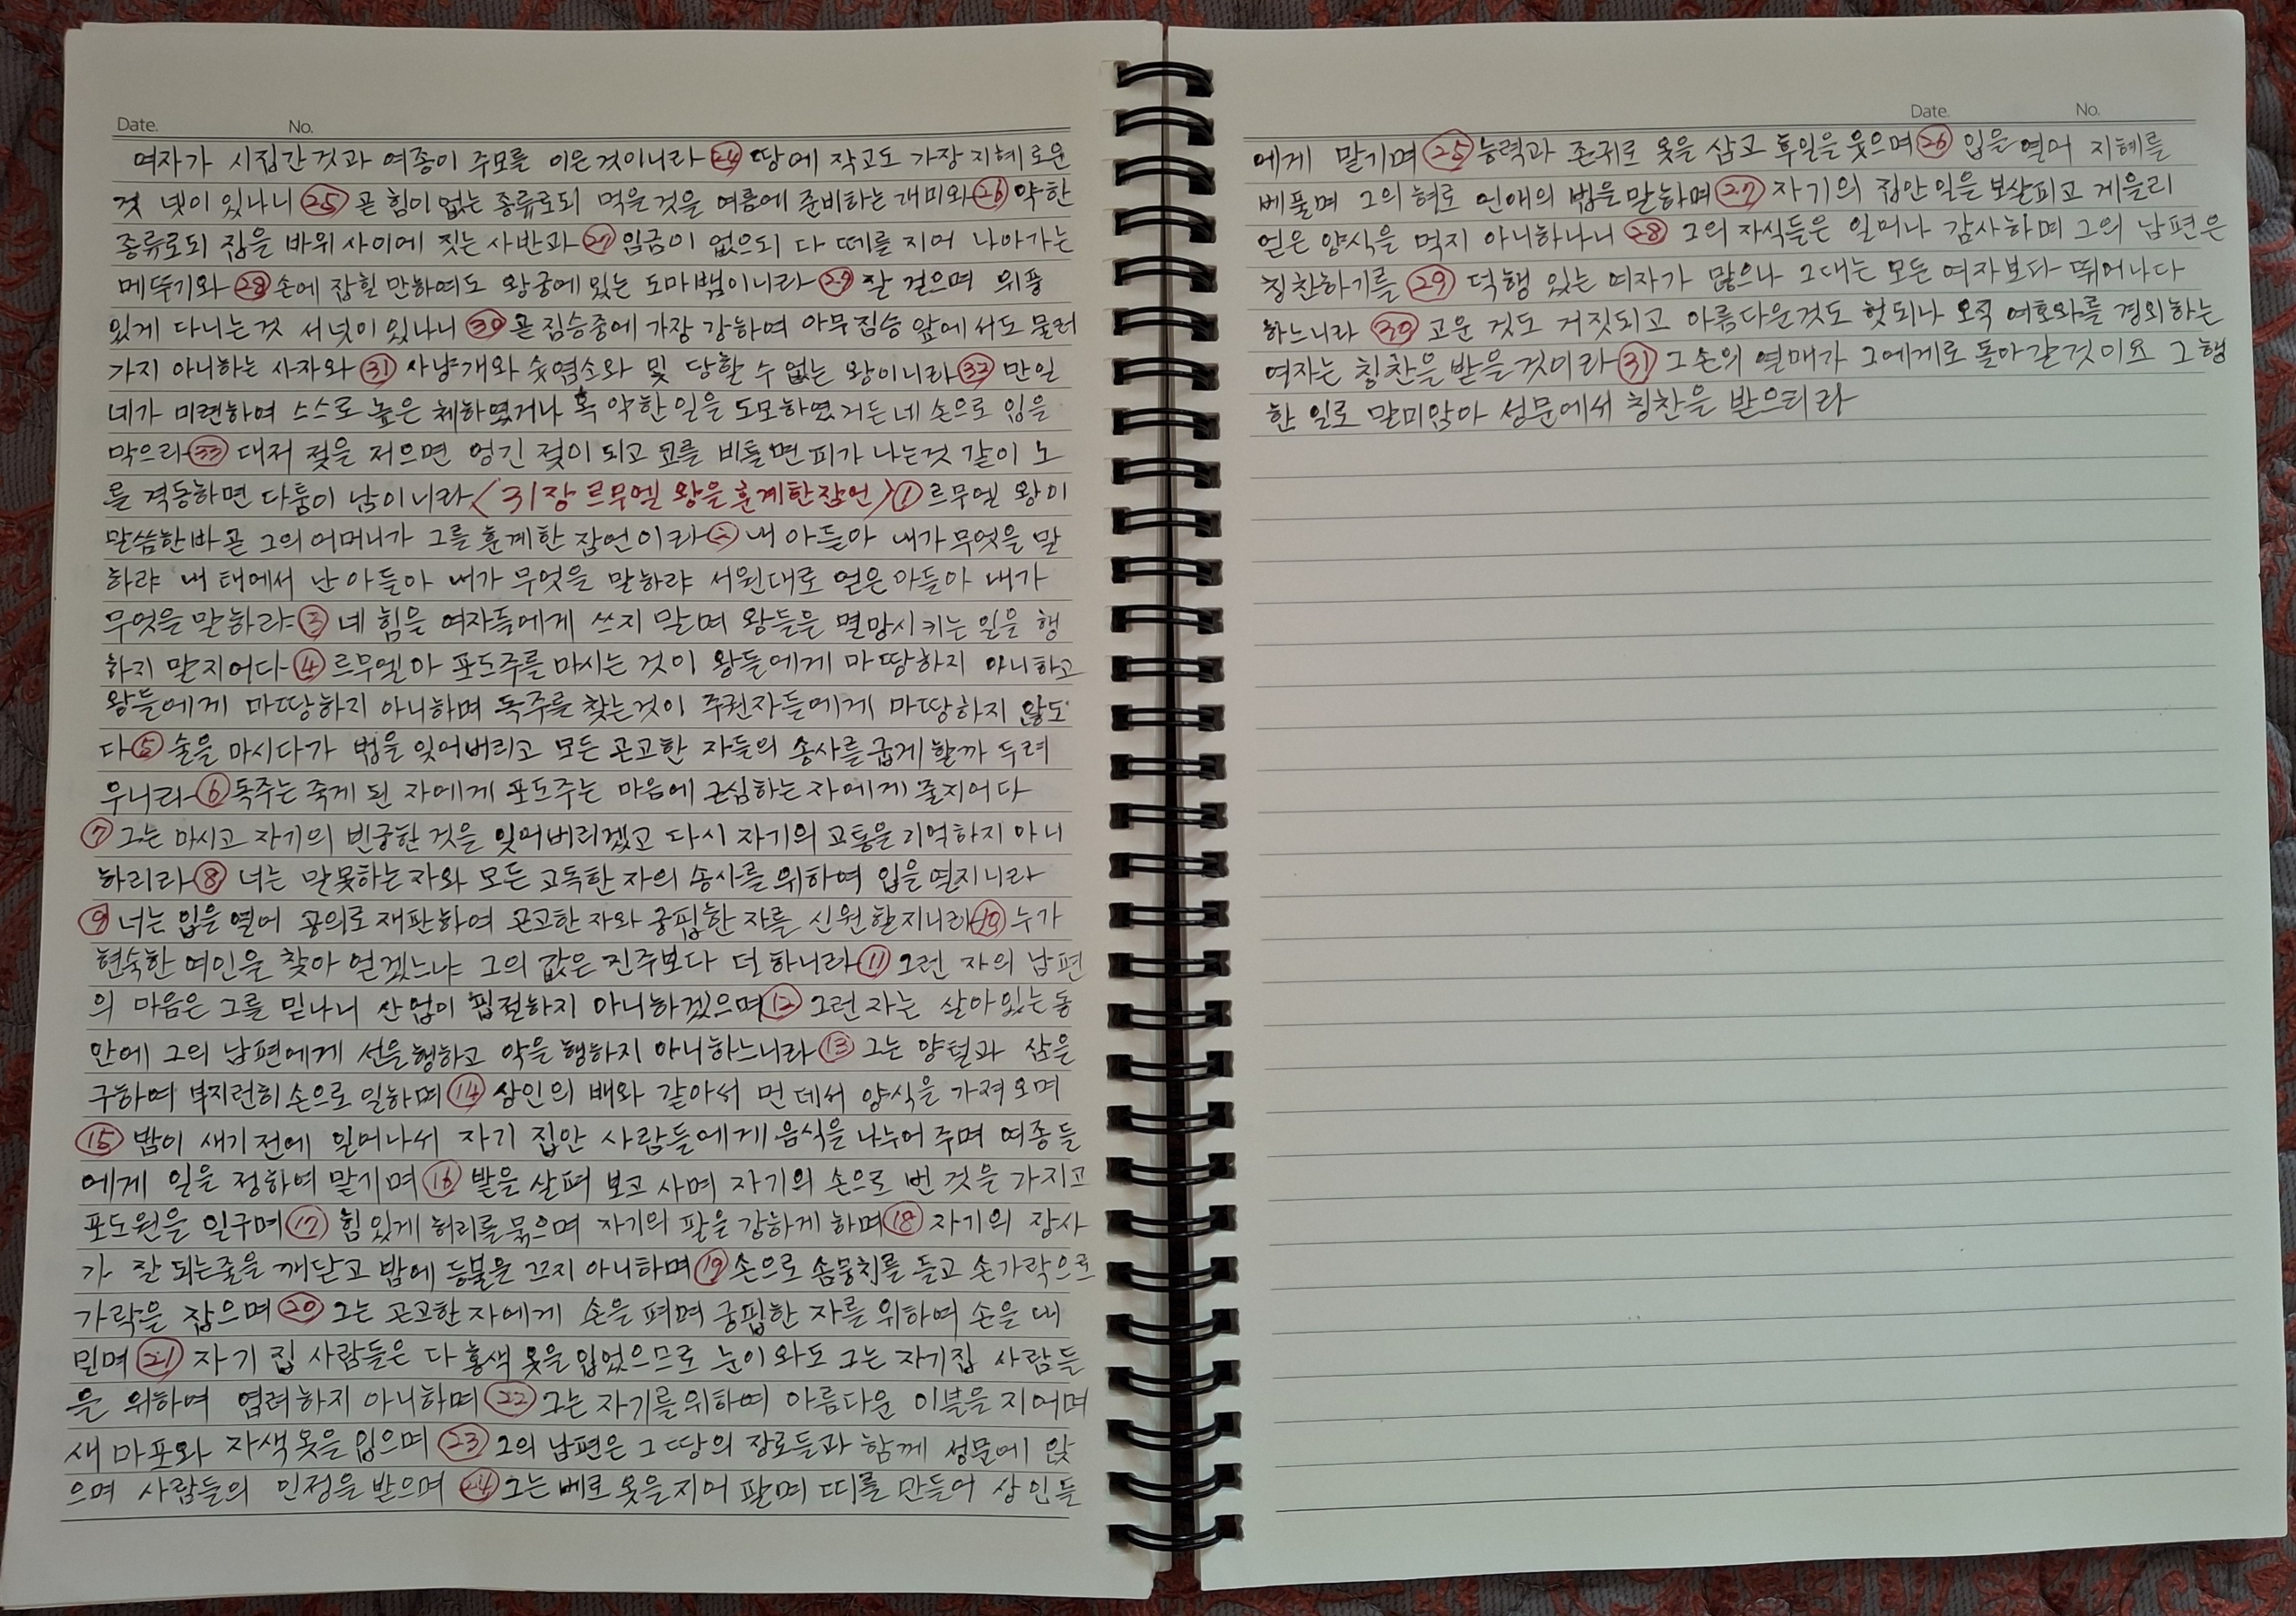 Date. No.
여자가 시집간것과 여종이 주모를 이은것이니라 24 땅에 작고도 가장 지혜로운
것 넷이 있나니 25 곧 힘이 없는 종류로되 먹을것을 여름에 준비하는 개미와 26 약한
종류로되 집을 바위 사이에 짓는 사반과 27 임금이 없으되 다 떼를 지어 나아가는
메뚜기와 28 손에 잡힐 만하여도 왕궁에 있는 도마뱀이니라 29 잘 걸으며 위풍
있게 다니는것 서넛이 있나니 30 곧 짐승중에 가장 강하여 아무 짐승 앞에서도 물러
가지 아니하는 사자와 31 사냥개와 숫염소와 및 당할 수 없는 왕이니라 32 만일
네가 미련하여 스스로 높은 체하였거나 혹 악한 일을 도모하였거든 네 손으로 입을
막으라 33 대저 젖을 저으면 엉긴 젖이 되고 코를 비틀면 피가 나는것 같이 노
를 격동하면 다툼이 남이니라 <31장 르무엘 왕을 훈계한 잠언> 1 르무엘 왕이
말씀한바 곧 그의 어머니가 그를 훈계한 잠언이라 2 내 아들아 내가 무엇을 말
하랴 내 태에서 난 아들아 내가 무엇을 말하랴 서원대로 얻은 아들아 내가
무엇을 말하랴 3 네 힘을 여자들에게 쓰지 말며 왕들을 멸망시키는 일을 행
하지 말지어다 4 르무엘아 포도주를 마시는 것이 왕들에게 마땅하지 아니하고
왕들에게 마땅하지 아니하며 독주를 찾는것이 주권자들에게 마땅하지 않도
다 5 술을 마시다가 법을 잊어버리고 모든 곤고한 자들의 송사를 굽게 할까 두려
우니라 6 독주는 죽게 된 자에게 포도주는 마음에 근심하는 자에게 줄지어다
7 그는 마시고 자기의 빈궁한 것을 잊어버리겠고 다시 자기의 고통을 기억하지 아니
하리라 8 너는 말못하는 자와 모든 고독한 자의 송사를 위하여 입을 열지니라
9 너는 입을 열어 공의로 재판하여 곤고한 자와 궁핍한 자를 신원할지니라 10 누가
현숙한 여인을 찾아 얻겠느냐 그의 값은 진주보다 더 하니라 11 그런 자의 남편
의 마음은 그를 믿나니 산업이 핍절하지 아니하겠으며 12 그런 자는 살아있는 동
안에 그의 남편에게 선을 행하고 악을 행하지 아니하느니라 13 그는 양털과 삼을
구하여 부지런히 손으로 일하며 14 상인의 배와 같아서 먼 데서 양식을 가져 오며
15 밤이 새기 전에 일어나서 자기 집안 사람들에게 음식을 나누어 주며 여종들
에게 일을 정하여 맡기며 16 밭을 살펴 보고 사며 자기의 손으로 번 것을 가지고
포도원을 일구며 17 힘 있게 허리를 묶으며 자기의 팔을 강하게 하며 18 자기의 장사
가 잘 되는줄을 깨닫고 밤에 등불을 끄지 아니하며 19 손으로 솜뭉치를 들고 손가락으로
가락을 잡으며 20 그는 곤고한 자에게 손을 펴며 궁핍한 자를 위하여 손을 내
밀며 21 자기 집 사람들은 다 홍색 옷을 입었으므로 눈이 와도 그는 자기집 사람들
을 위하여 염려하지 아니하며 22 그는 자기를 위하여 아름다운 이불을 지으며
세마포와 자색 옷을 입으며 23 그의 남편은 그 땅의 장로들과 함께 성문에 앉
으며 사람들의 인정을 받으며 24 그는 베로 옷을 지어 팔며 띠를 만들어 상인들
Date. No.
에게 맡기며 25 능력과 존귀로 옷을 삼고 후일을 웃으며 26 입을 열어 지혜를
베풀며 그의 혀로 인애의 법을 말하며 27 자기의 집안 일을 보살피고 게을리
얻은 양식을 먹지 아니하나니 28 그의 자식들은 일어나 감사하며 그의 남편은
칭찬하기를 29 덕행 있는 여자가 많으나 그대는 모든 여자보다 뛰어나다
하느니라 30 고운 것도 거짓되고 아름다운것도 헛되나 오직 여호와를 경외하는
여자는 칭찬을 받을것이라 31 그 손의 열매가 그에게로 돌아갈것이요 그 행
한 일로 말미암아 성문에서 칭찬을 받으리라